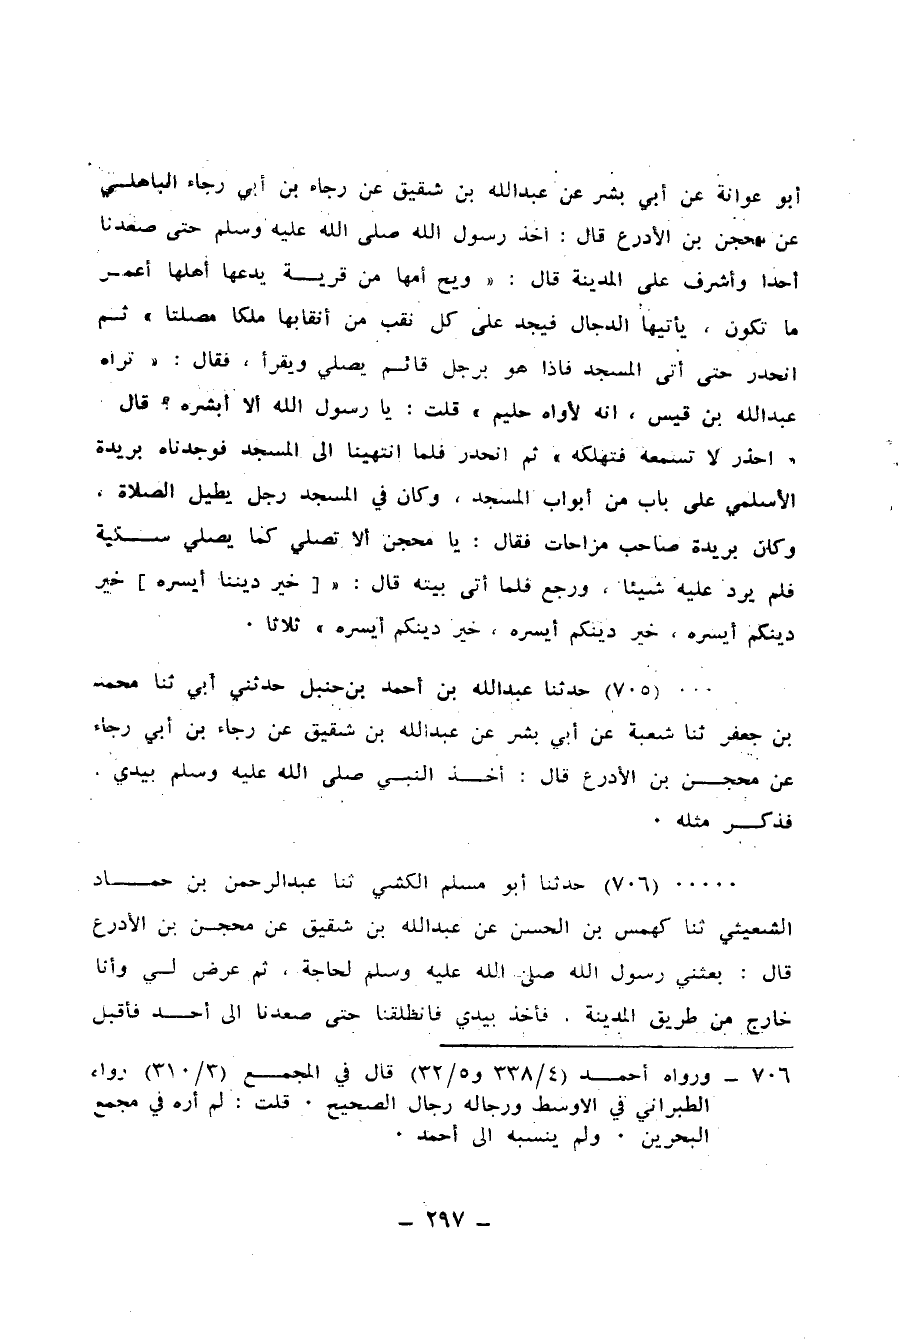 أبو عوانة عن أبي بشر عن عبدالله بن شقيق عن رجاء بن أبي رجاء الباهلي
عن محجن بن الأدرع قال : أخذ رسول الله صلى الله عليه وسلم حتى صعدنا
أحدا وأشرف على المدينة قال : « ويح أمها من قريــة يدعها أهلها أعمر
ما تكون ، يأتيها الدجال فيجد على كل نقب من أنقابها ملكا مصلتا » ثم
انحدر حتى أتى المسجد فاذا هو برجل قائم يصلي ويقرأ ، فقال : « تراه
عبدالله بن قيس ، انه لأواه حليم » قلت : يا رسول الله ألا أبشره ؟ قال
« احذر لا تسمعه فتهلكه » ثم انحدر فلما انتهينا الى المسجد فوجدناه بريدة
الأسلمي على باب من أبواب المسجد ، وكان في المسجد رجل يطيل الصلاة ،
وكان بريدة صاحب مزاحات فقال : يا محجن ألا تصلي كما يصلي سـكبة
فلم يرد عليه شيئا ، ورجع فلما أتى بيته قال : « [ خير ديننا أيسره ] خير
دينكم أيسره ، خير دينكم أيسره ، خير دينكم أيسره » ثلاثا ٠
٠٠٠ (٧٠٥) حدثنا عبدالله بن أحمد بن حنبل حدثني أبي ثنا محمد
بن جعفر ثنا شعبة عن أبي بشر عن عبدالله بن شقيق عن رجاء بن أبي رجاء
عن محجــن بن الأدرع قال : أخــذ النبــي صلى الله عليه وسلم بيدي .
فذكــر مثله ٠
٠٠٠٠٠ (٧٠٦) حدثنا أبو مسلم الكشي ثنا عبدالرحمن بن حمــاد
الشعيثي ثنا كهمس بن الحسن عن عبدالله بن شقيق عن محجـن بن الأدرع
قال : بعثني رسول الله صلى الله عليه وسلم لحاجة ، ثم عرض لــي وأنا
خارج من طريق المدينة . فأخذ بيدي فانطلقنا حتى صعدنا الى أحــد فأقبل
٧٠٦ ــ ورواه أحمــد (٣٣٨/٤ و٣٢/٥) قال في المجمــع (٣١٠/٣) رواه
الطبراني في الاوسط ورجاله رجال الصحيح ٠ قلت : لم أره في مجمع
البحرين ٠ ولم ينسبه الى أحمد ٠
ــ ٢٩٧ ــ